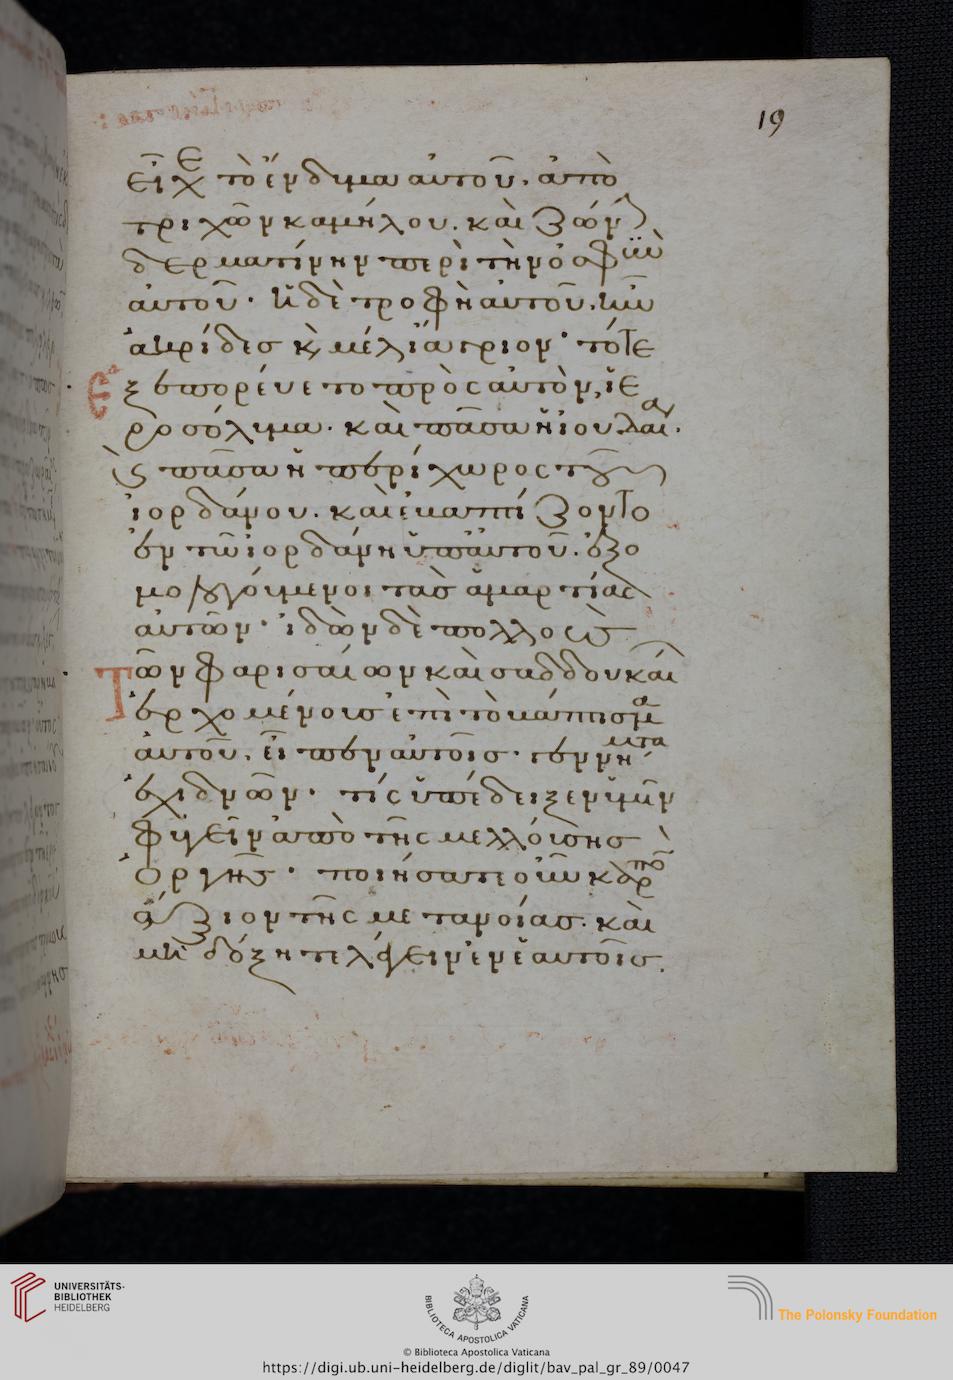 19
εἶχε τὸ ἔνδυμα αὐτοῦ. ἀπὸ
τριχῶν καμήλου. καὶ ζών(ην)
δερματίνην περὶ τὴν ὀσφὺν
αὐτοῦ. ἡ δὲ τροφὴ αὐτοῦ. ἦν
ἀκρίδες κ(αὶ) μέλι ἄγριον. τότε
ἐξεπορέυετο πρὸς αὐτὸν, ἱε
ροσόλυμα. καὶ πᾶσα ἡ ἰουδαία.
κ(αὶ) πᾶσα ἡ περίχωρος τοῦ
ἰορδάνου. καὶ ἐβαπτίζοντο
ἐν τῶ ἰορδάνη ὑπ' αὐτοῦ. ἐξο
μολογούμενοι τὰς ἁμαρτίας
αὐτῶν. ἰδὼν δὲ πολλοὺς
τῶν φαρισαίων καὶ σαδδουκαί(ων)
ἐρχομένους ἐπὶ τὸ βάπτισμα
αὐτοῦ. εἶπεν αὐτοῖς. γεννήματα
ἐχιδνῶν. τίς ὑπέδειξεν ὑμῖν
φυγεῖν ἀπὸ τῆς μελλούσης
ὀργῆς. ποιήσατε οὖν καρπὸν
ἄξιον τῆς μετανοίας. καὶ
μὴ δόξητε λέγειν ἐν ἑαυτοῖς.
UNIVERSITÄTS-
BIBLIOTHEK
HEIDELBERG
BIBLIOTECA APOSTOLICA VATICANA
The Polonsky Foundation
© Biblioteca Apostolica Vaticana
https://digi.ub.uni-heidelberg.de/diglit/bav_pal_gr_89/0047